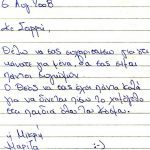 6 Αυγ 2008
κε Σαρρή,
Θέλω να σας ευχαριστήσω για ότι
κάνατε για μένα θα σας είμαι
πάντα ευγνώμων.
Ο Θεός να σας έχει πάντα καλά
για να δίνεται πίσω το χαμόγελο
στα παιδιά όλου του κόσμου.
η Μικρή
Μαρίζα :-)